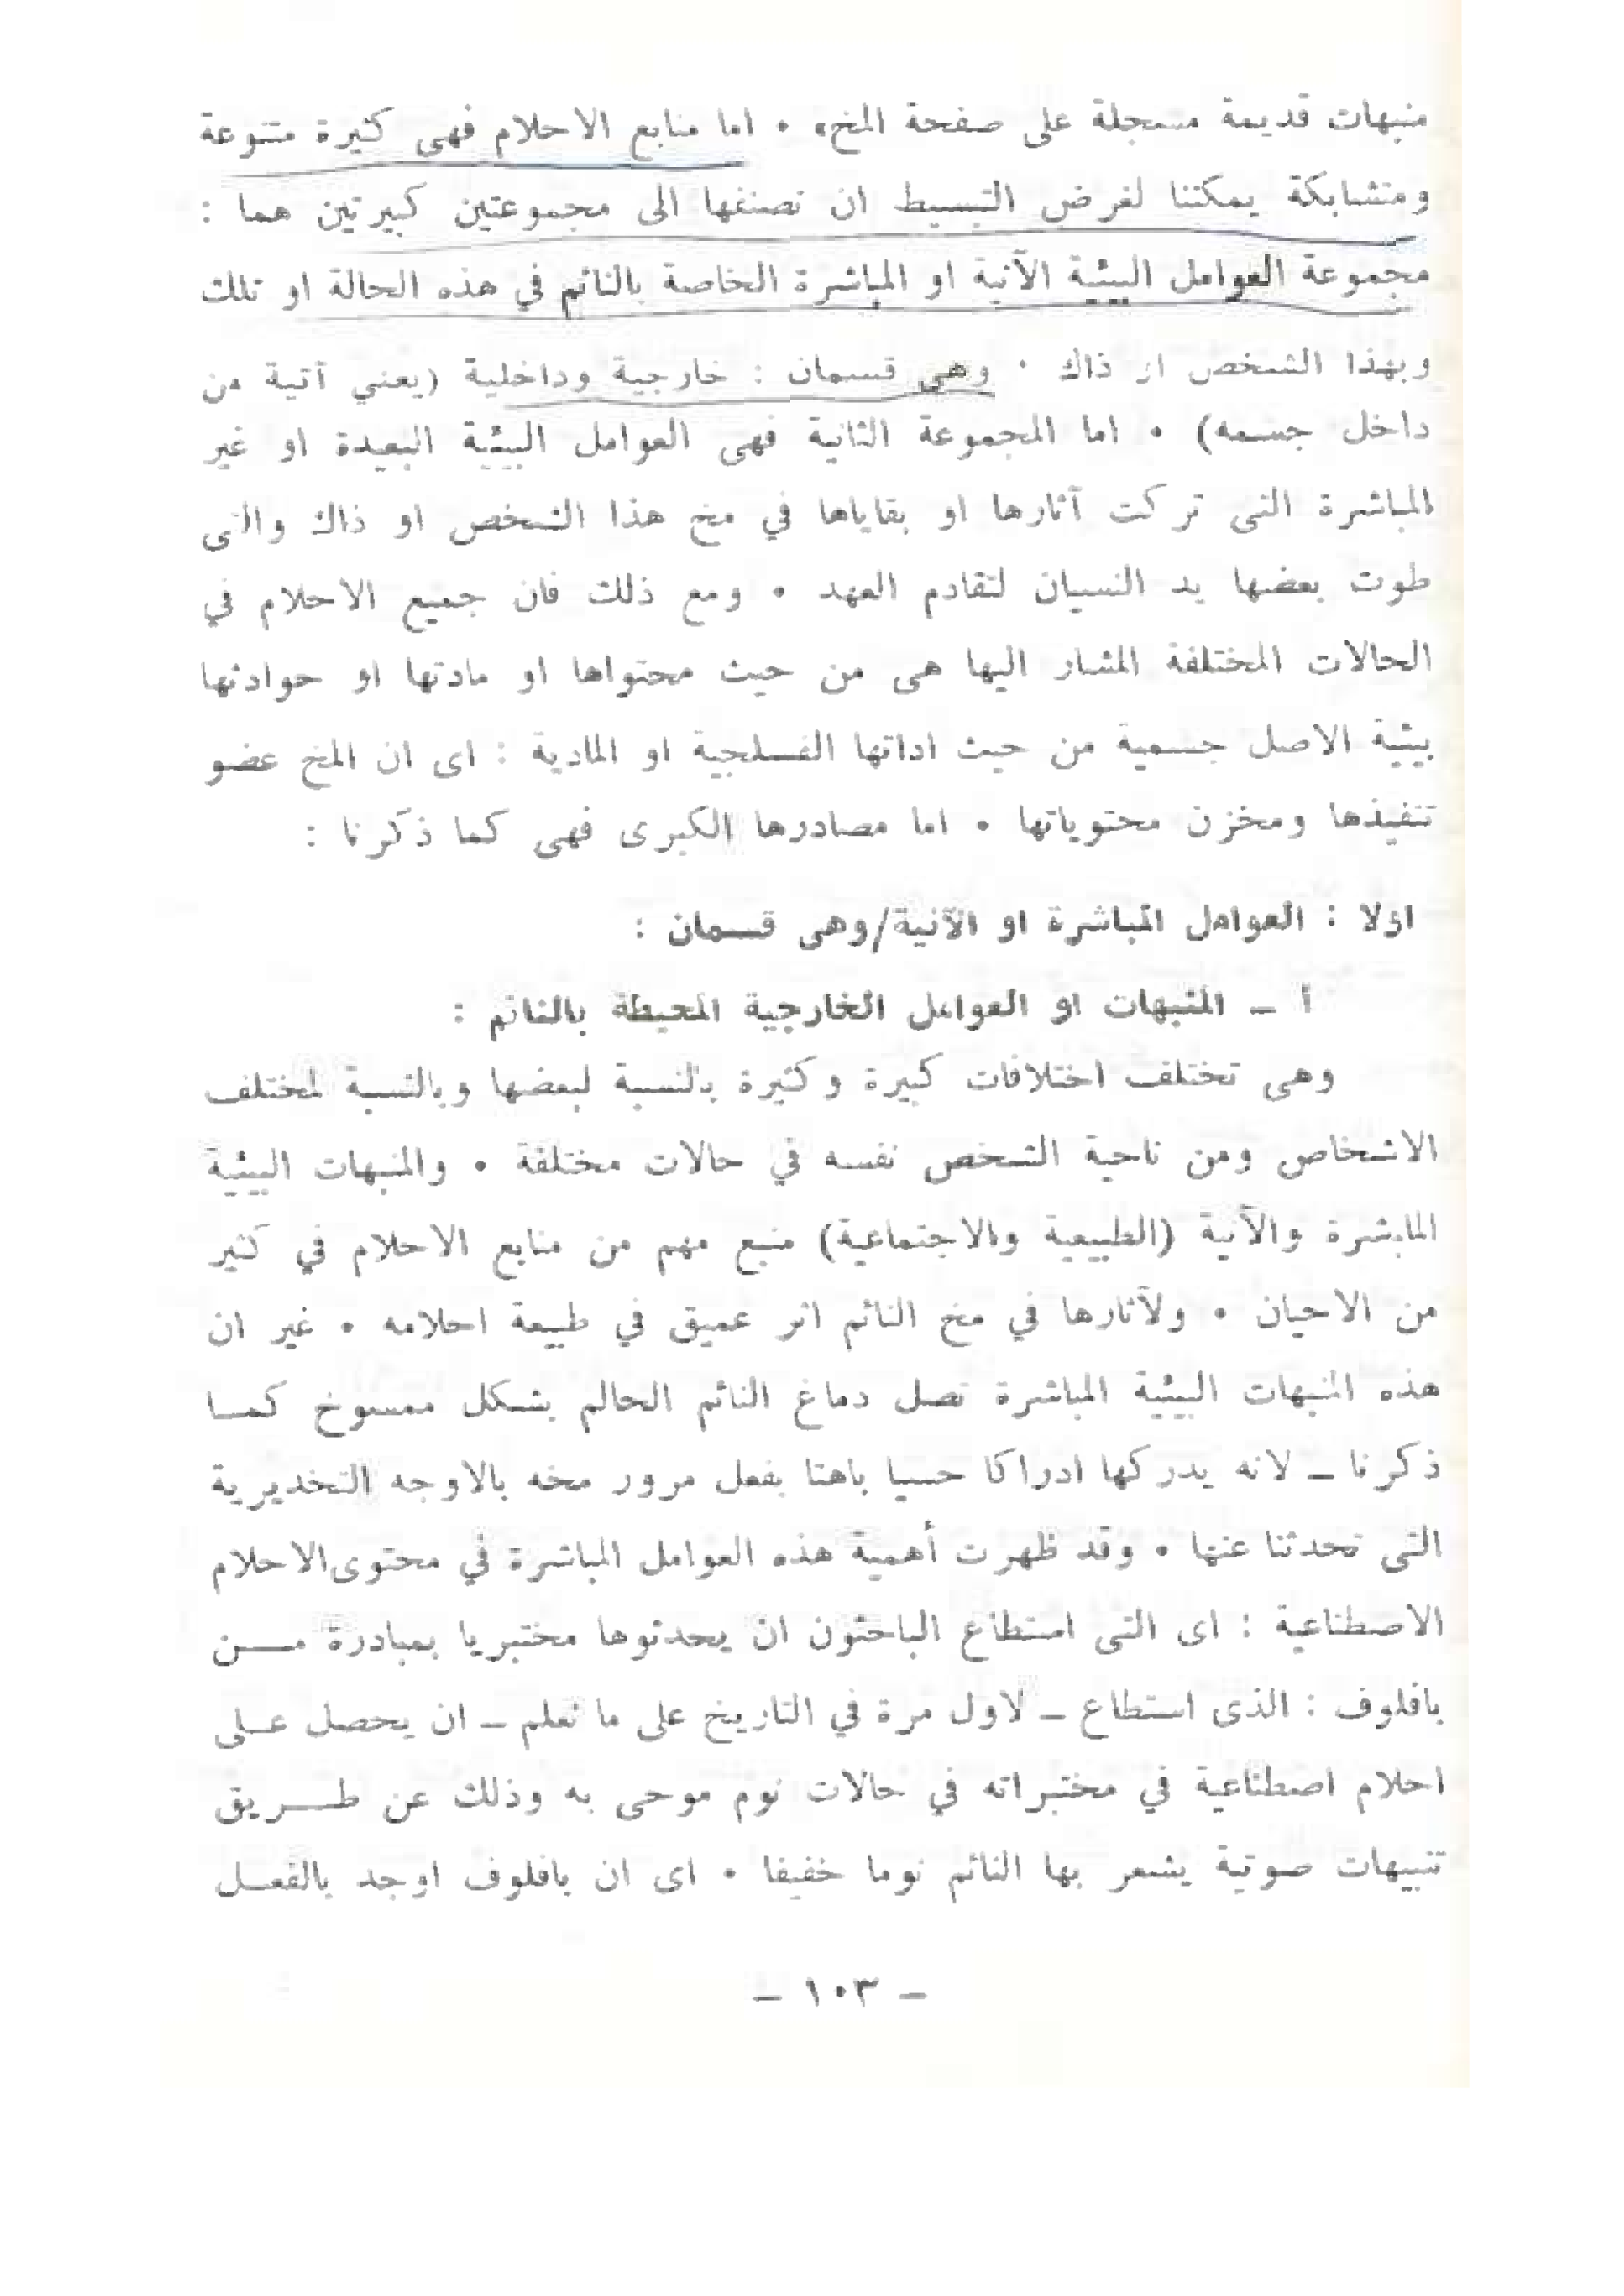 منبهات قديمة مسجلة على صفحة المخ، • اما منابع الاحلام فهى كثيرة متنوعة
ومتشابكة يمكننا لغرض التبسيط ان نصنفها الى مجموعتين كبيرتين هما :
مجموعة العوامل البيئية الآنية او المباشرة الخاصة بالنائم في هذه الحالة او تلك
وبهذا الشخص او ذاك • وهى قسمان : خارجية وداخلية (يعني آتية من
داخل جسمه) • اما المجموعة الثانية فهى العوامل البيئية البعيدة او غير
المباشرة التى تركت آثارها او بقاياها في مخ هذا الشخص او ذاك والتى
طوت بعضها يد النسيان لتقادم العهد • ومع ذلك فان جميع الاحلام في
الحالات المختلفة المشار اليها هى من حيث محتواها او مادتها او حوادثها
بيئية الاصل جسمية من حيث اداتها الفسلجية او المادية : اى ان المخ عضو
تنفيذها ومخزن محتوياتها • اما مصادرها الكبرى فهى كما ذكرنا :
اولا : العوامل المباشرة او الآنية/وهى قسمان :
أ ـ المنبهات او العوامل الخارجية المحيطة بالنائم :
وهى تختلف اختلافات كبيرة وكثيرة بالنسبة لبعضها وبالنسبة لمختلف
الاشخاص ومن ناحية الشخص نفسه في حالات مختلفة • والمنبهات البيئية
المابشرة والآنية (الطبيعية والاجتماعية) منبع مهم من منابع الاحلام في كثير
من الاحيان • ولآثارها في مخ النائم اثر عميق في طبيعة احلامه • غير ان
هذه المنبهات البيئية المباشرة تصل دماغ النائم الحالم بشكل ممسوخ كمـا
ذكرنا ـ لانه يدركها ادراكا حسيا باهتا بفعل مرور مخه بالاوجه التخديرية
التى تحدثنا عنها • وقد ظهرت أهمية هذه العوامل المباشرة في محتوى الاحلام
الاصطناعية : اى التى استطاع الباحثون ان يحدثوها مختبريا بمبادرة مـــن
بافلوف : الذى استطاع ـ لاول مرة في التاريخ على ما نعلم ـ ان يحصل عـلى
احلام اصطناعية في مختبراته في حالات نوم موحى به وذلك عن طـــريق
تنبيهات صوتية يشعر بها النائم نوما خفيفا • اى ان بافلوف اوجد بالفعـل
ـ ١٠٣ ـ